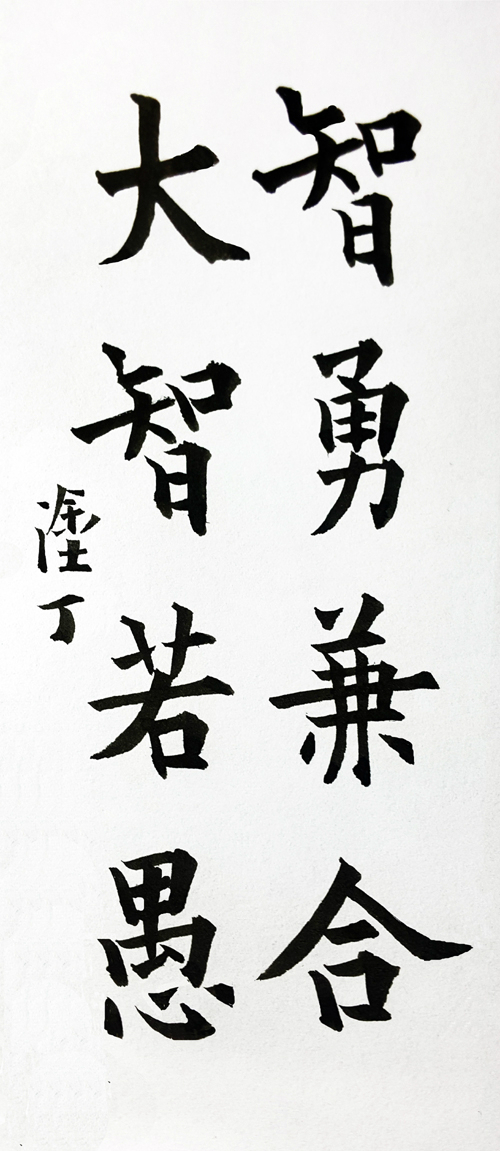 智勇兼合
大智若愚
塗丁